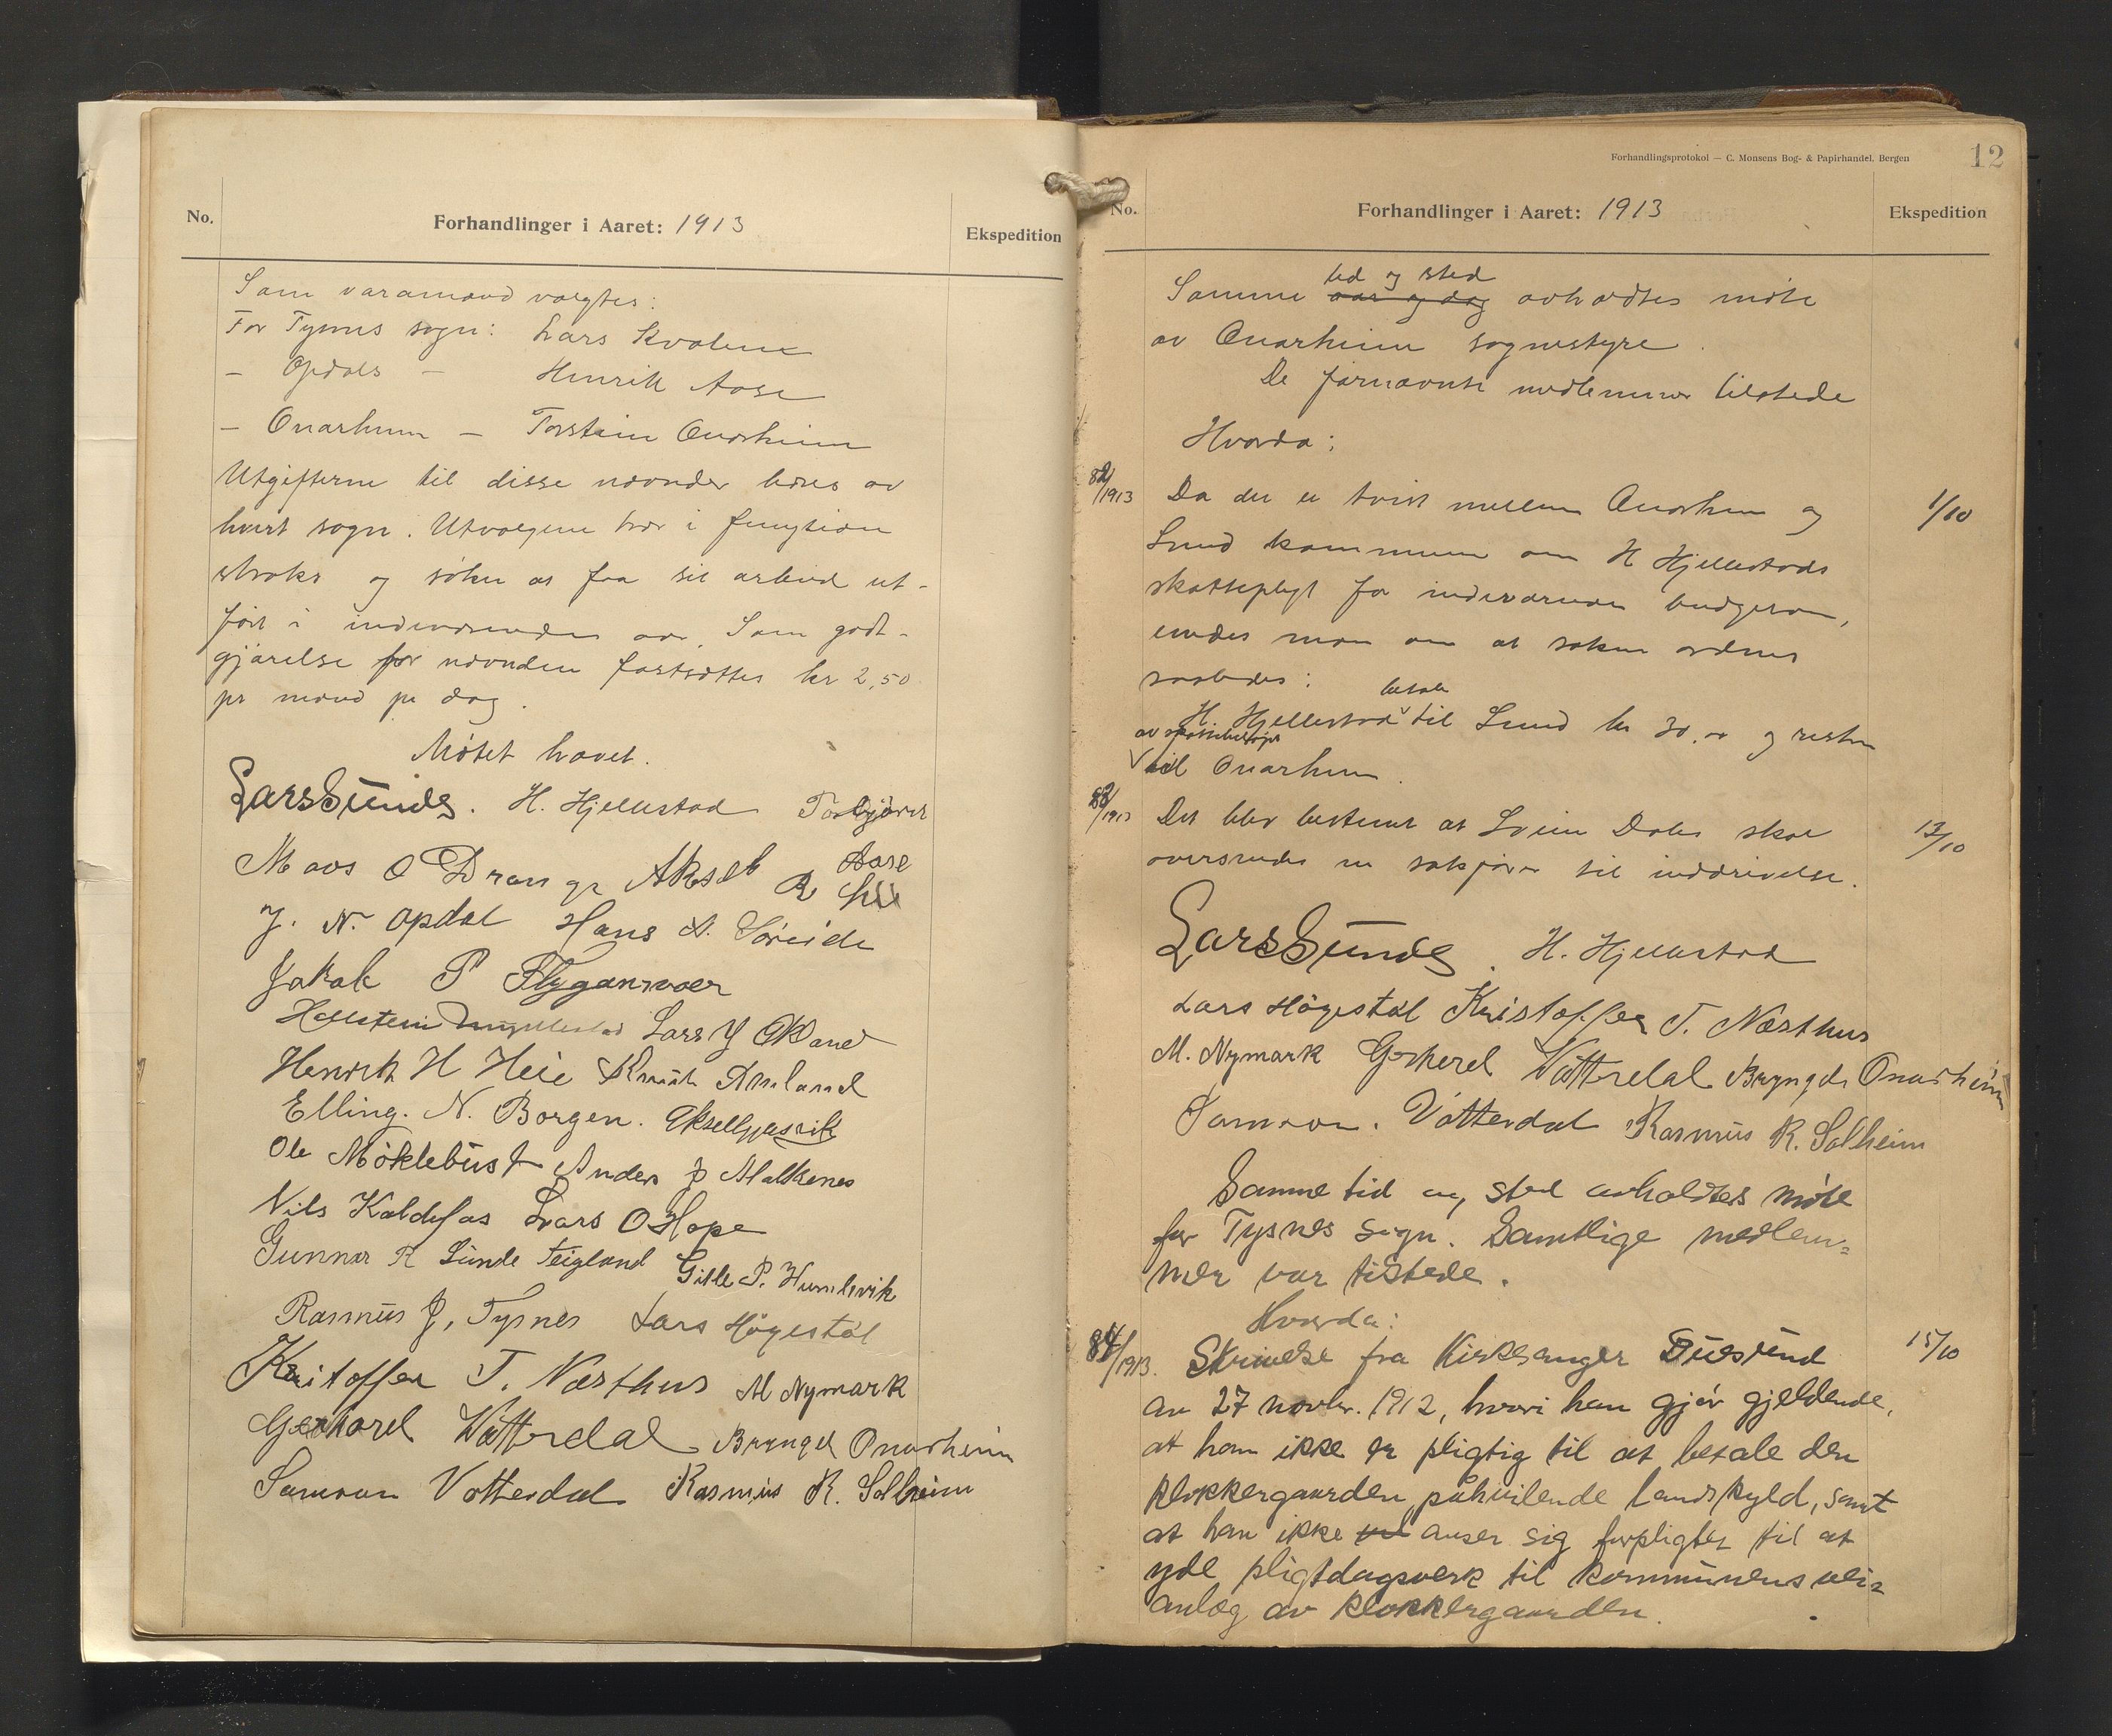 No.
Forhandlinger i Aaret: 1913
Ekspedition
Som varamænd valgtes:
For Tysnes sogn: Lars Kvalem
– Opdals – Henrik Aase
– Onarheim – Torstein Onarheim
Utgifterne til disse nævnder bæres av
hvert sogn. Utvalgene træ i funktion
straks og søker at faa sit arbeid ut-
ført i indeværende aar. Som godt-
gjørelse for nævnden fastsættes kr 2,50
pr mand pr dag.
Møtet hævet.
Lars Sunde. H. Hjellestad Torbjørn
Aase
Mons O Drange Aksel R Lie
J. N. Opdal Hans A. Søreide
Jakob P Flygansvær
Hallstein Lars J Økland
Henrik H Heie Knut Amland
Elling. N. Borgen. Aksel Gjersvik
Ole Møklebust Anders J Malkenes
Nils Kaldefos Lars O Hope
Gunnar R Sunde Teigland Gitle P. Humlevik
Rasmus J. Tysnes Lars Høgestøl
Kristoffer T. Næsthus M Nymark
Gerhard Vatterdal Brynjel Onarheim
Samson Votterdal Rasmus R. Solheim
Forhandlingsprotokol — C. Monsens Bog- & Papirhandel, Bergen
12
No.
Forhandlinger i Aaret: 1913
Ekspedition
tid og sted
Samme aar og dag avholdtes møte
av Onarheim sognestyre.
De førnævnte medlemmer tilstede
Hvorda:
82/1913 Da der er tvist mellem Onarheim og 1/10
Lund kommune om H Hjellestads
skattepligt for indeværende budgetaar,
enedes man om at saken ordnes
saaledes:
betale
H. Hjellestad til Lund kr 30,00 og resten
av
til Onarheim.
83/1913 Det blev bestemt at Svein Dales skat 13/10
oversendes en sakfører til inddrivelse.
Lars Sunde. H. Hjellestad
Lars Høgestøl Kristoffer T. Næsthus
M. Nymark Gerhard Vatterdal Brynjel Onarheim
Samson. Votterdal Rasmus R. Solheim
Samme tid og sted avholdtes møte
for Tysnes sogn. Samtlige medlem=
mer var tilstede.
Hvorda:
84/1913. Skrivelse fra kirkesanger Duesund 15/10
av 27 novbr. 1912, hvori han gjør gjeldende,
at han ikke er pligtig til at betale den
klokkergaarden påhvilende landskyld, samt
at han ikke anser sig forpligtet til at
yde pligtdagsverk til kommunens vei=
anlæg av klokkergaarden.